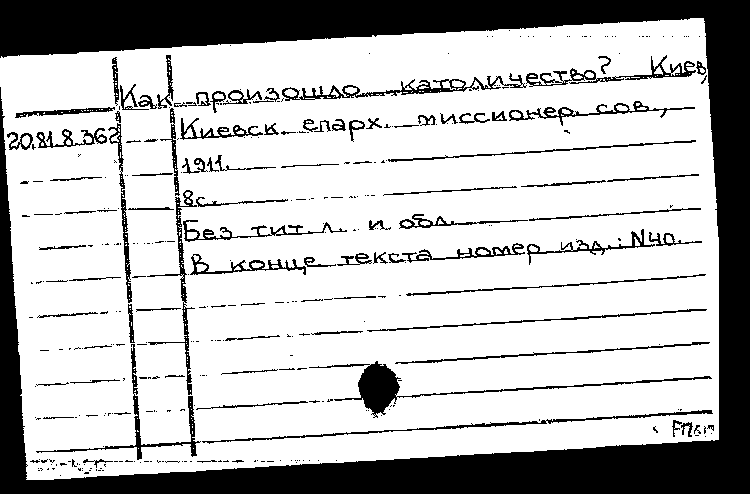 Как произошло католичество? Киев,
20.81.8.362 Киевск. епарх. миссионер. сов.,
1911.
8с.
Без тит. л. и обл.
В конце текста номер изд.: N40.